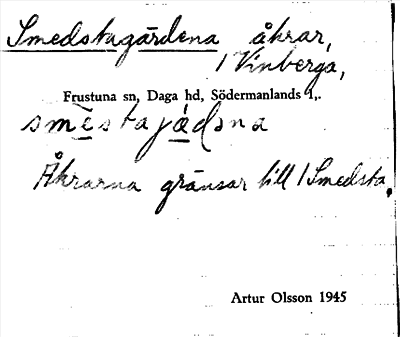 Smedstagärdena åkrar,
/ Vinberga,
Frustuna sn, Daga hd, Södermanlands l,.
smèstajä̀dəna
Åkrarna gränsar till / Smedsta.
Artur Olsson 1945